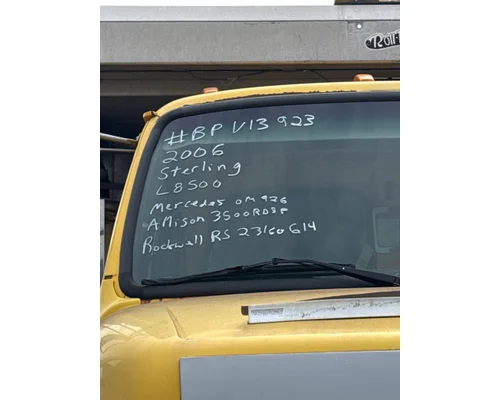 Roll-
#BP V13 923
2006
Sterling
L8500
Mercedes OM 926
Allison 3500RDSP
Rockwell RS 23160 G14